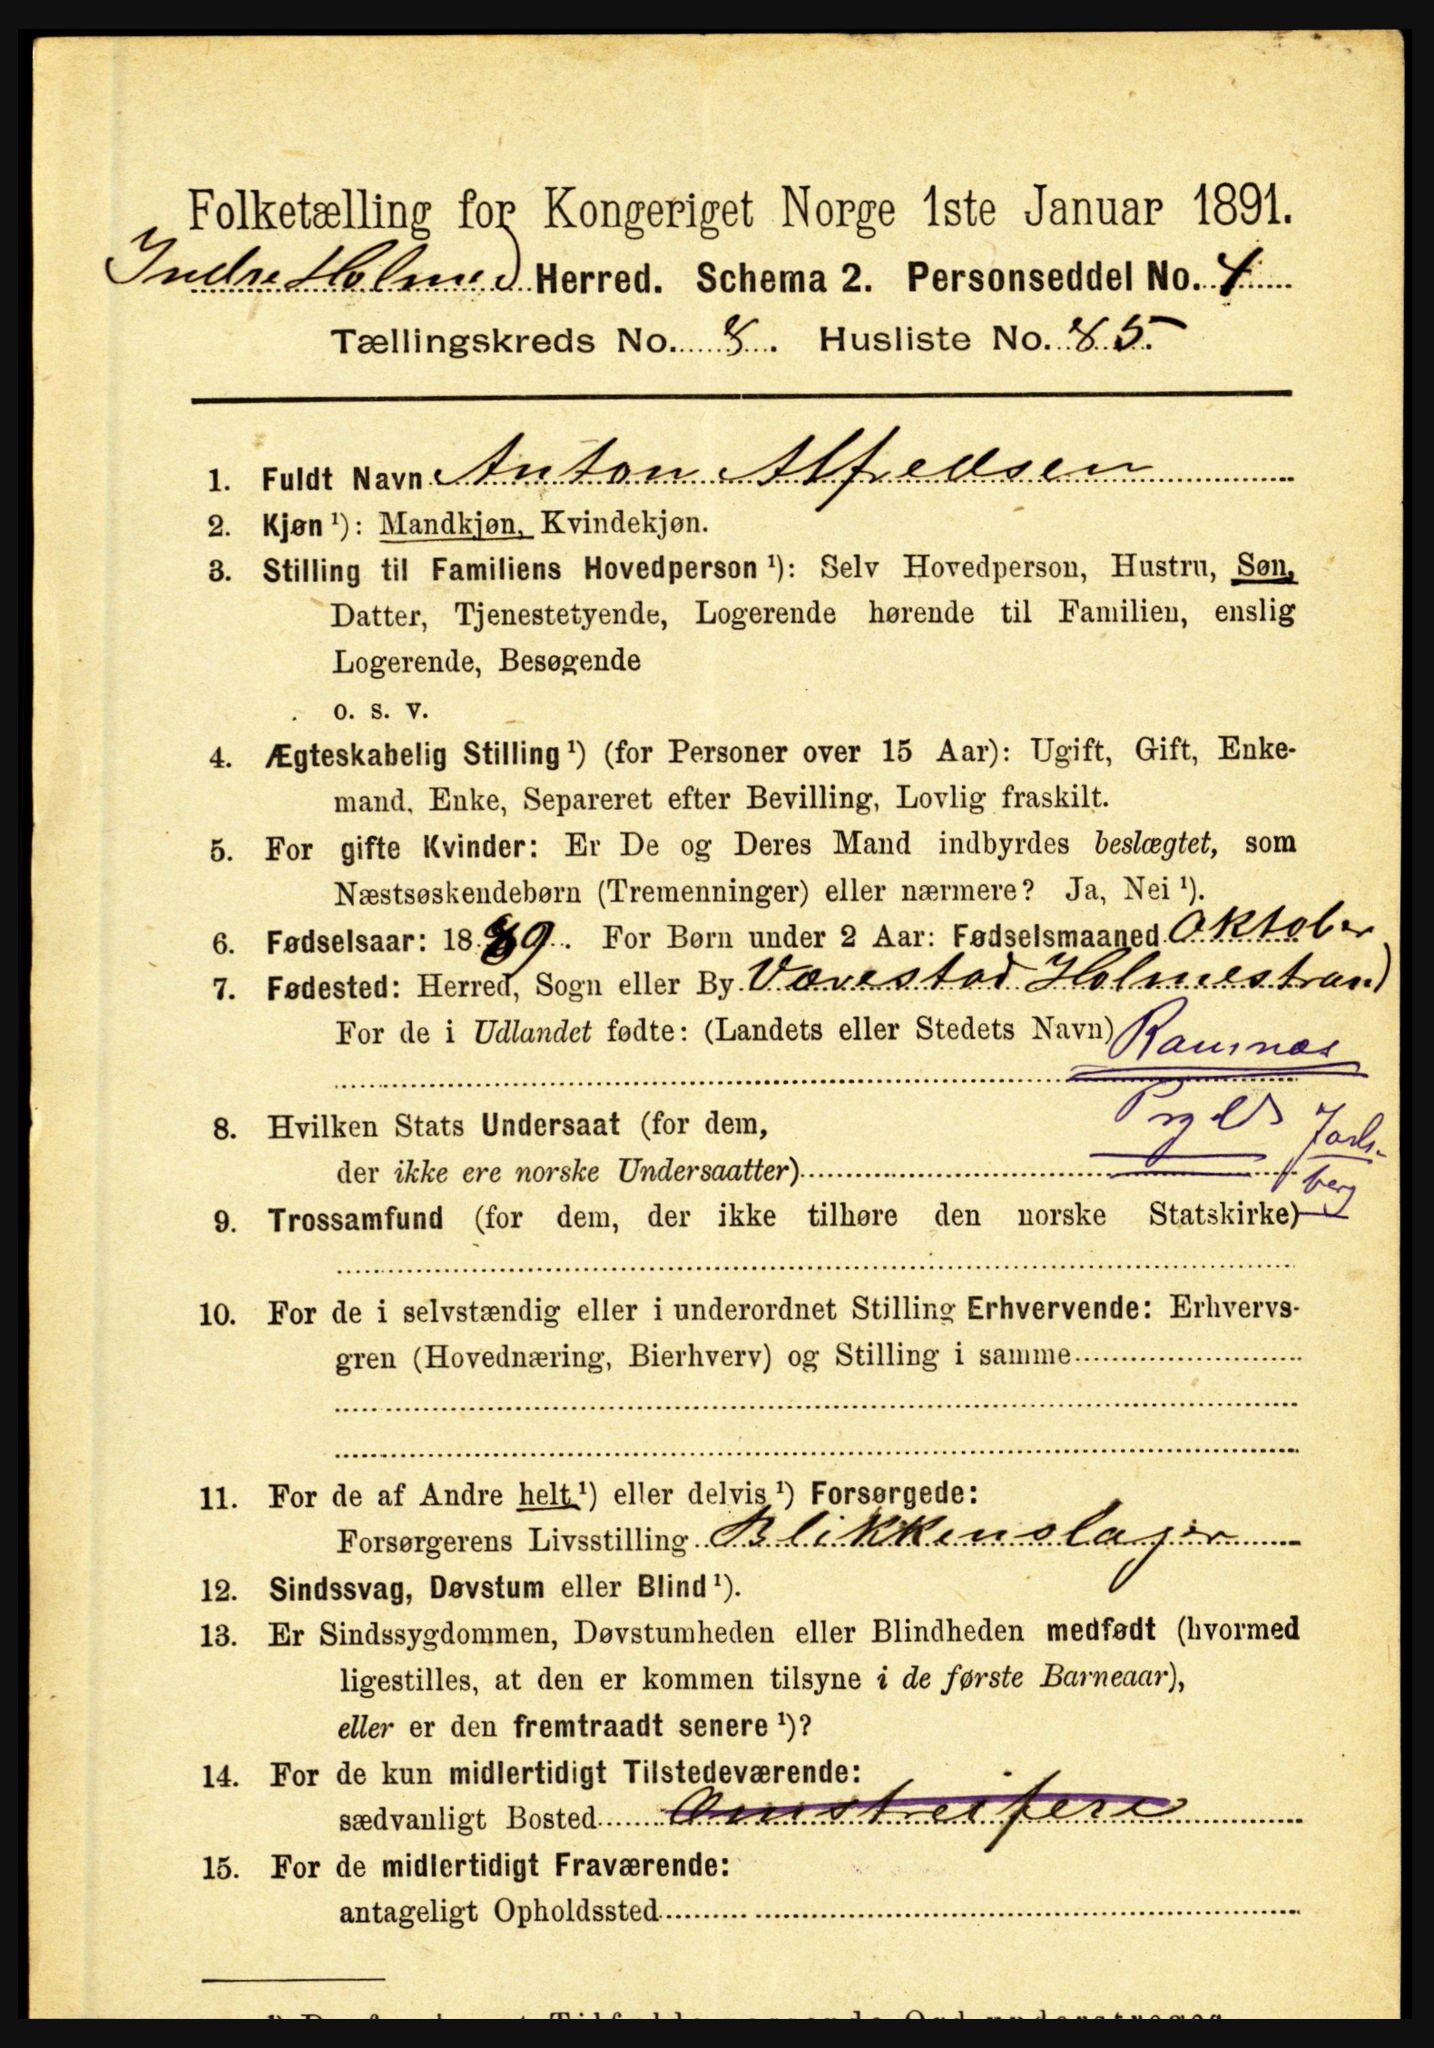 Folketælling for Kongeriget Norge 1ste Januar 1891.
Indre Holmed Herred. Schema 2. Personseddel No. 4
Tællingskreds No. 8. Husliste No. 85.
1. Fuldt Navn Anton Alfredsen
2. Kjøn ¹): Mandkjøn, Kvindekjøn.
3. Stilling til Familiens Hovedperson ¹): Selv Hovedperson, Hustru, Søn,
Datter, Tjenestetyende, Logerende hørende til Familien, enslig
Logerende, Besøgende
o. s. v.
4. Ægteskabelig Stilling ¹) (for Personer over 15 Aar): Ugift, Gift, Enke-
mand, Enke, Separeret efter Bevilling, Lovlig fraskilt.
5. For gifte Kvinder: Er De og Deres Mand indbyrdes beslægtet, som
Næstsøskendebørn (Tremenninger) eller nærmere? Ja, Nei ¹).
6. Fødselsaar: 1889. For Børn under 2 Aar: Fødselsmaaned Oktober
7. Fødested: Herred, Sogn eller By Værestad Holmestrand
For de i Udlandet fødte: (Landets eller Stedets Navn)
Ramnæs
8. Hvilken Stats Undersaat (for dem,
Jarls-
der ikke ere norske Undersaatter)
berg
9. Trossamfund (for dem, der ikke tilhøre den norske Statskirke)
10. For de i selvstændig eller i underordnet Stilling Erhvervende: Erhvervs-
gren (Hovednæring, Bierhverv) og Stilling i samme
11. For de af Andre helt ¹) eller delvis ¹) Forsørgede:
Forsørgerens Livsstilling Blikkenslager
12. Sindssvag, Døvstum eller Blind ¹).
13. Er Sindssygdommen, Døvstumheden eller Blindheden medfødt (hvormed
ligestilles, at den er kommen tilsyne i de første Barneaar),
eller er den fremtraadt senere ¹)?
14. For de kun midlertidigt Tilstedeværende:
sædvanligt Bosted Omstreifere
15. For de midlertidigt Fraværende:
antageligt Opholdssted